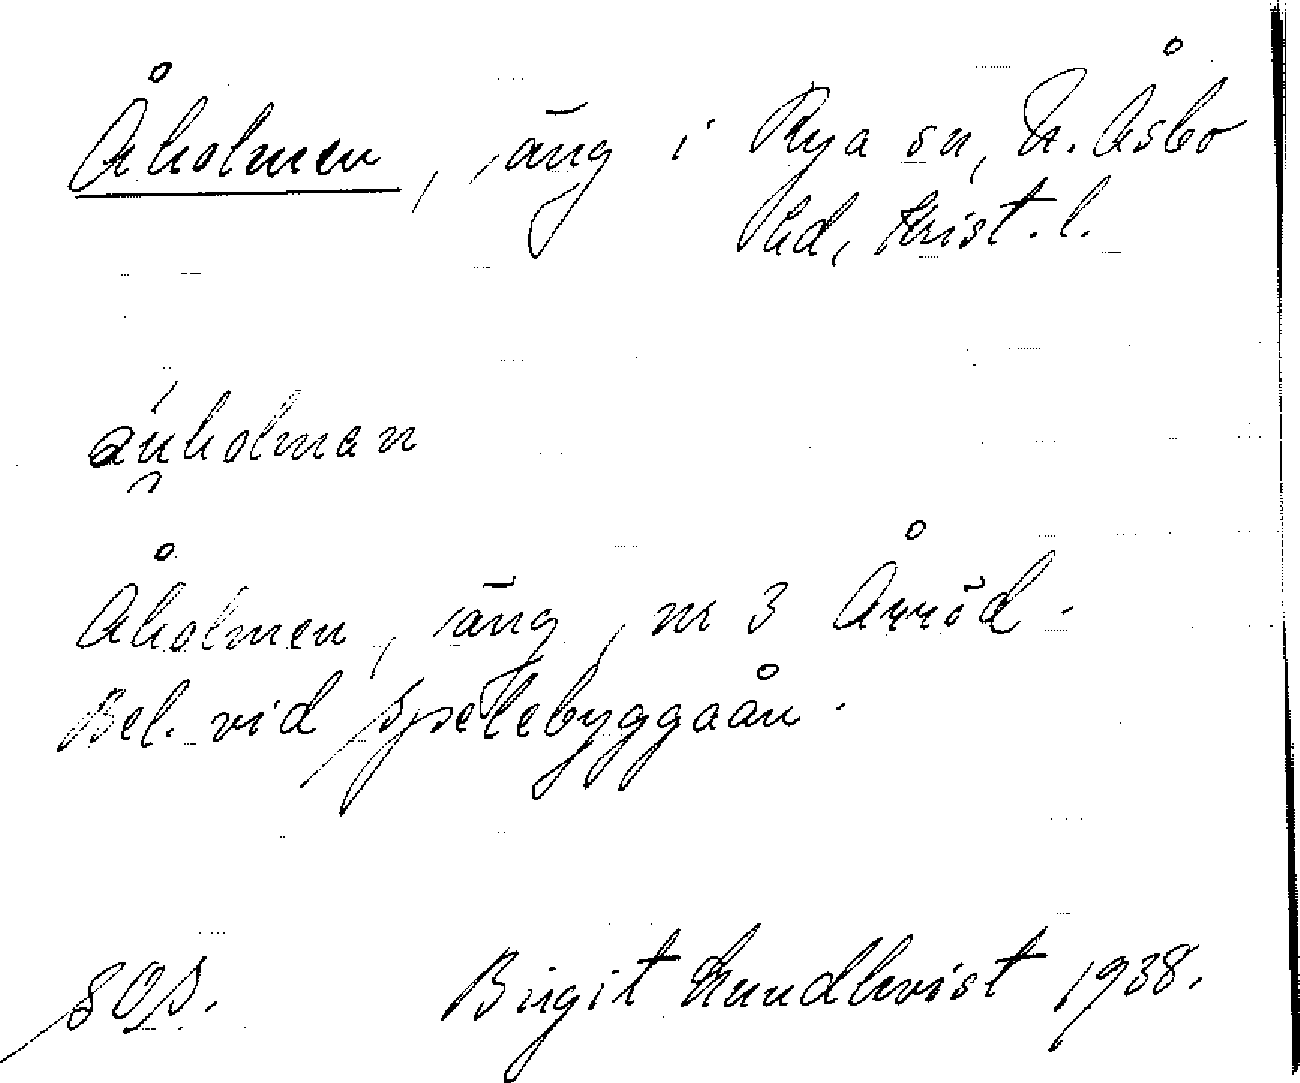 Åholmen, äng i Rya sn, N. Åsbo
hd, Krist. l.
Åholmen, äng, nr 3 Årröd.
Bel. vid Spelebyggaån.
Birgit Lundkvist 1938.